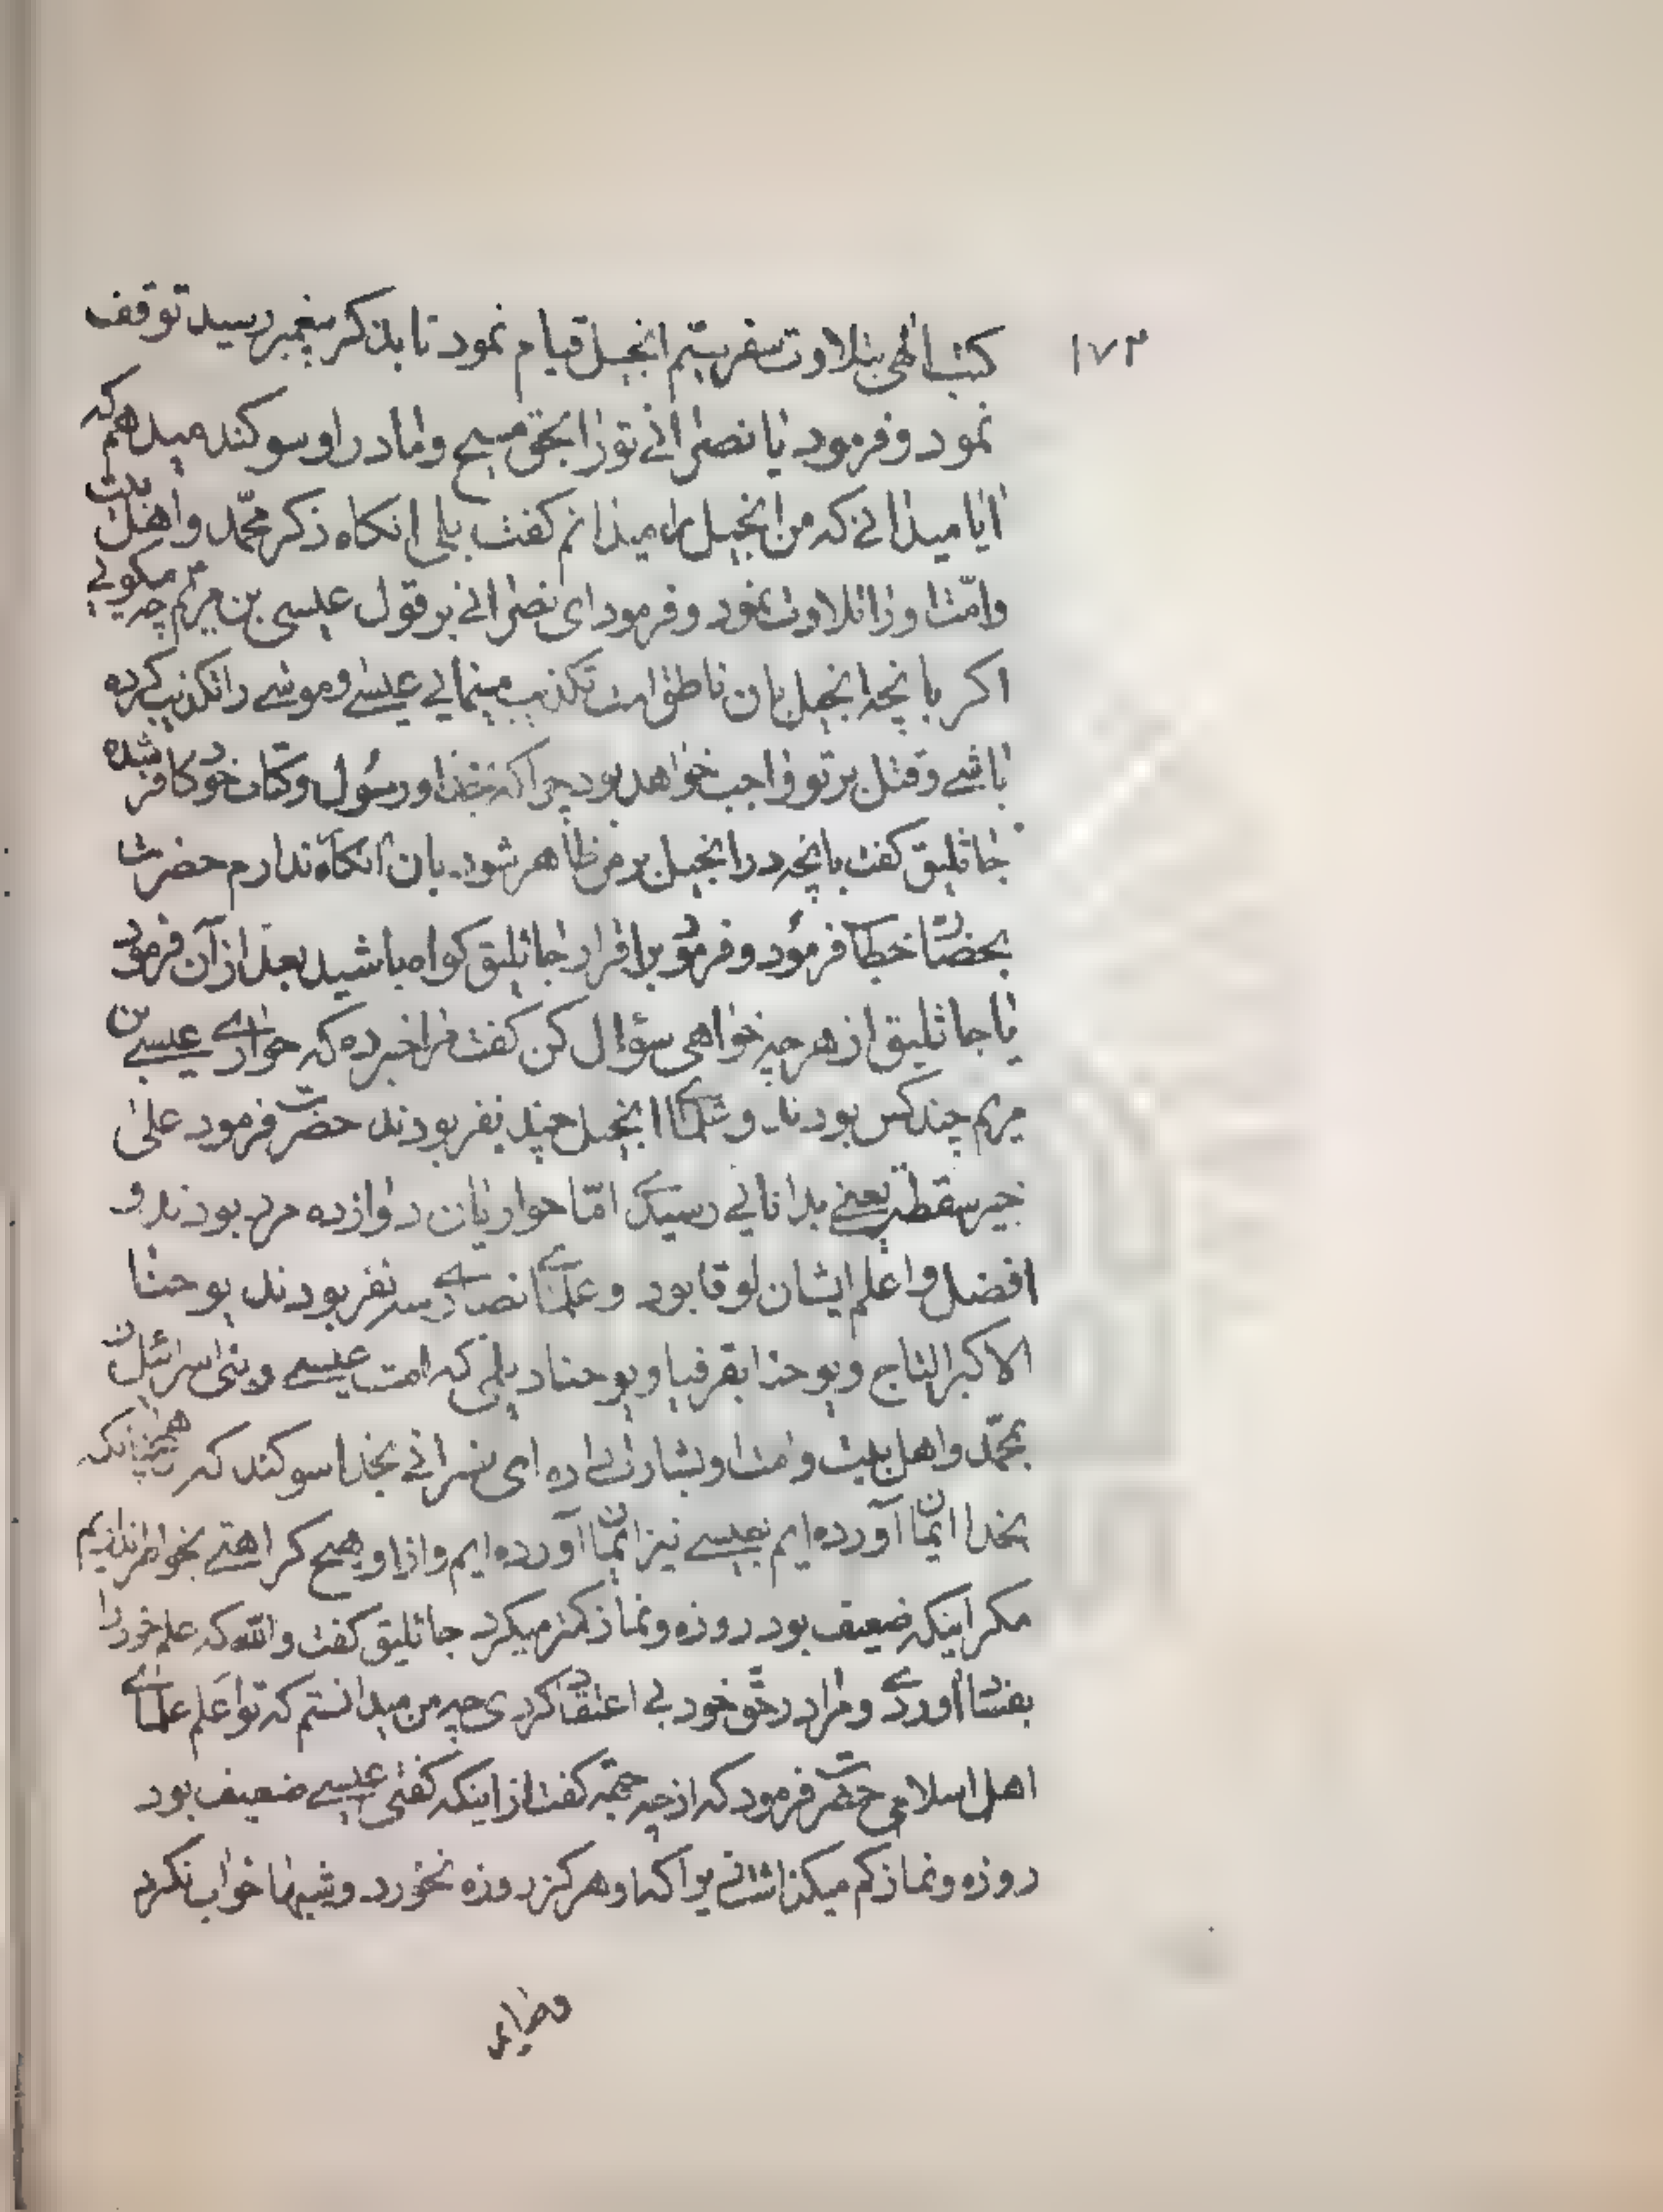 ۱۷۲
کتب الهی بتلاوت سفر سیم انجیل قیام نمود تا بذکر پیغمبر رسید توقف
نمود و فرمود یا نصرانی تو را بحق مسیح و مادر او سوکند میدهم که
ایا میدانی که من انجیل را میدانم کفت بلی انکاه ذکر محمّد و اهل بیت
و امّت او را تلاوت نمود و فرمود ای نصرانی بر قول عیسی بن مریم چه میکوئی
اکر بانچه انجیل بان ناطق است تکذیب مینمائی عیسی و موسی را تکذیب کرده
باشی و قتل بر تو واجب خواهد بود چرا که بخدا و رسول و کتاب خود کافر شده
جاثلیق کفت بانچه در انجیل بر من ظاهر شود بان انکار ندارم حضرت
بحضار خطاب فرمود و فرمود بر اقرار جاثلیق کواه باشید بعد از آن فرمود
یا جاثلیق از هر چه خواهی سؤال کن کفت مرا خبر ده که حواری عیسی بن
مریم چند کس بودند و علمای انجیل چند نفر بودند حضرت فرمود علی
خبیر سقطت یعنی بدانائی رسیدی امّا حواریان دوازده مرد بودند و
افضل و اعلم ایشان لوقا بود و علمای نصاری سه نفر بودند یوحنا
الاکبر الناج و یوحنا بقرفیا و یوحنا دیلمی که امت عیسی و بنی اسرائیل را
بمحمّد و اهل بیت و امت او بشارت داده ای نصرانی بخدا سوکند که همچنانکه
بخدا ایمان آورده ایم بعیسی نیز ایمان آورده ایم و از او هیچ کراهتی بخواطر نداریم
مکر اینکه ضعیف بود روزه و نماز کمتر میکرد جاثلیق کفت والله که علم خود را
بفساد آوردی و مرا در حق خود بی اعتقاد کردی چه من میدانستم که تو اعلم علمای
اهل اسلامی حضرت فرمود که از چه جهته کفت از اینکه کفتی عیسی ضعیف بود
روزه و نماز کم میکذاشت و هرکز روزه نخورد و شبها خواب نکرد